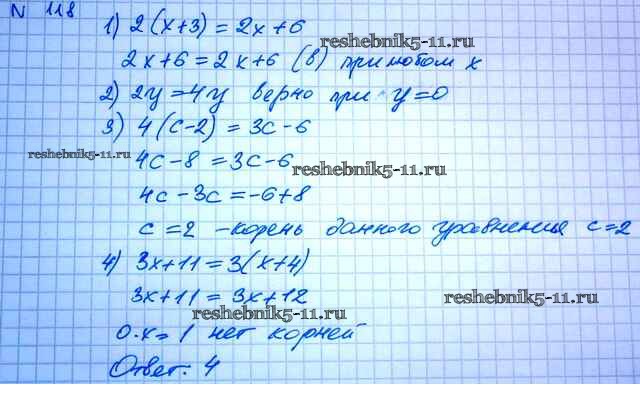 N 118
1) 2(x+3) = 2x+6
reshebnik5-11.ru
2x+6 = 2x+6 (в) при любом x
2) 2y = 4y верно при y = 0
3) 4(c-2) = 3c-6
reshebnik5-11.ru
4c-8 = 3c-6
reshebnik5-11.ru
4c-3c = -6+8
c = 2 - корень данного уравнения c = 2
4) 3x+11 = 3(x+4)
3x+11 = 3x+12
reshebnik5-11.ru
reshebnik5-11.ru
0·x = 1 нет корней
Ответ: 4